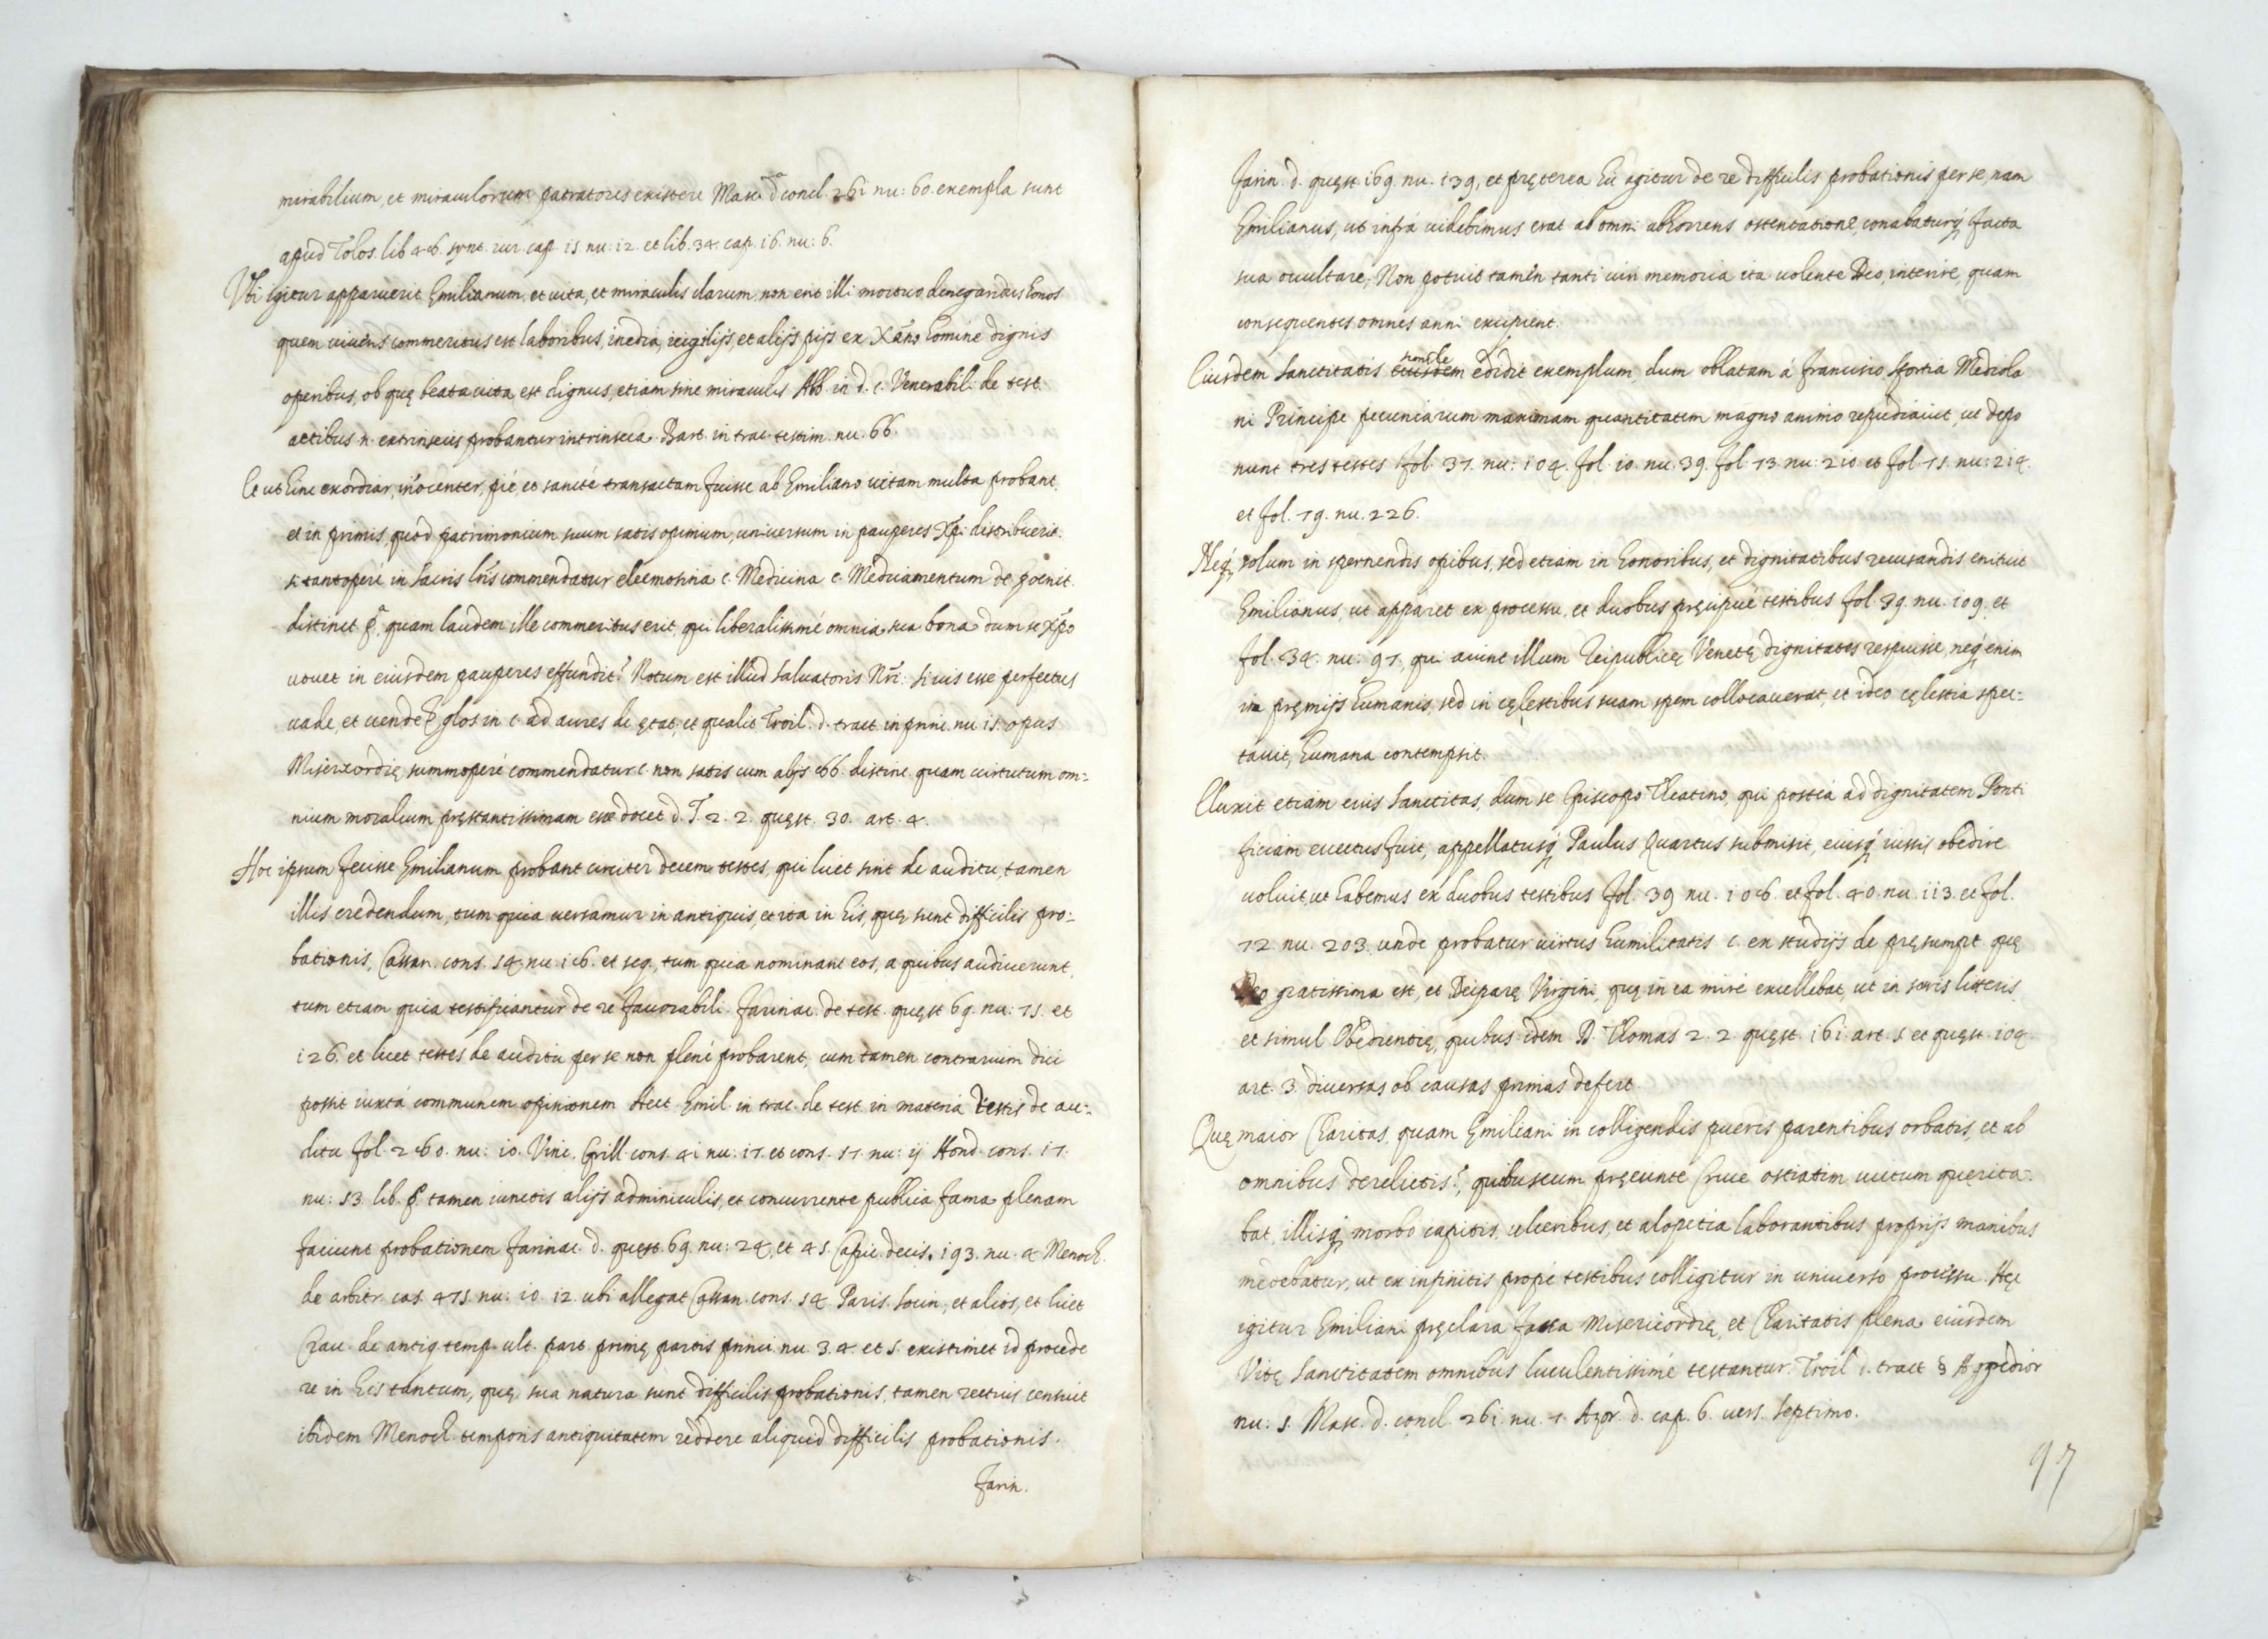 mirabilium, et miraculorum patratores existere Masc. d. concl. 261 nu: 60. exempla sunt
apud Tolos. lib. 46. synt. iur. cap. 15. nu: 12. et lib. 34. cap. 16. nu: 6.
Vbi igitur apparuerit Emilianum, et uita, et miraculis clarum, non erit illi mortuo denegandus honos
quem uiuens commeritus est laboribus, inedia, uigilijs, et alijs pijs ex Xano homine dignis
operibus, ob quę beata uita est dignus, etiam sine miraculis Abb. in d. c. Venerabili de test.
actibus n. extrinsecis probantur intrinseca. Bart. in trac. testim. nu. 66.
Et ut hinc exordiar, inocenter, pié, et sancté transactam fuisse ab Emiliano uitam multa probant,
et in primis, quod patrimonium suum satis opimum, uniuersum in pauperes Xpi distribuerit.
si tantoperé in sacris lris commendatur eleemosina c. Medicina c. Medicamentum de poenit.
distinct. p.ª, quam laudem ille commeritus erit, qui liberalissimé omnia sua bona dum se Xpo
uouet in eiusdem pauperes effundit? Notum est illud saluatoris Nri: si uis esse perfectus
uade, et uende &c glos in c. ad aures de ętat. et qualit. Troil. d. tract. in princ. nu. 15. opus
Misericordię summoperé commendatur c. non satis cum alijs 86. distinc. quam uirtutum om-
nium moralium pręstantissimam esse docet d. T. 2. 2. quęst. 30. art. 4.
Hoc ipsum fecisse Emilianum probant circiter decem testes, qui licet sint de auditu, tamen
illis credendum, tum quia uersamur in antiquis, et ita in his, quę sunt difficilis pro-
bationis, Cassan. cons. 54. nu. 16. et seq., tum quia nominant eos, a quibus audiuerunt,
tum etiam quia testificantur de re fauorabili. Farinac. de test. quęst. 69. nu: 75. et
126. et licet testes de auditu per se non plené probarent, cum tamen contrarium dici
possit iuxtá communem opinionem Hect. Emil. in trac. de test. in materia Testis de au-
ditu fol. 260. nu: 10. Vinc. Grill. cons. 41 nu: 17. et cons. 57. nu: ij Hond. cons. 17.
nu: 53. lib. p.º tamen iunctis alijs adminiculis, et concurrente publica fama plenam
faciunt probationem Farinac. d. quęst. 69. nu: 24. et 45. Capic. decis. 193. nu. 4 Menoch.
de arbitr. cas. 475. nu: 10. 12. ubi allegat Cassan. cons. 54. Paris. Socin., et alios, et licet
Crau. de antiq. temp. ult. part. primę partis princ. nu. 3. 4. et 5. existimet id procede
re in his tantum, quę sua natura sunt difficilis probationis, tamen rectius censuit
ibidem Menoch. temporis antiquitatem reddere aliquid difficilis probationis.
Farin.
Farin. d. quęst. 169. nu. 139, et pręterea hic agitur de re difficilis probationis per se, nam
Emilianus, ut infrá uidebimus erat ab omni abhorrens ostentatione, conabaturq; facta
sua occultare; Non potuit tamen tanti uiri memoria ita uolente Deo, interire, quam
consequentes omnes anni excipient.
Eiusdem sanctitatis eiusdem edidit exemplum, dum oblatam á Francisco Sfortia Mediola
ni Principe pecuniarum maximam quantitatem magno animo repudiauit, ut depo
nunt tres testes fol. 37. nu: 104. fol. 10. nu. 39. fol. 73. nu: 210. et fol. 75. nu: 214.
et fol. 79. nu. 226.
Neq; solum in spernendis opibus, sed etiam in honoribus, et dignitatibus recusandis enituit
Emilianus, ut apparet ex processu, et duobus pręcipué testibus fol. 39. nu. 109. et
fol. 34. nu: 97. qui aiunt illum Reipublicę Venetę dignitates respuisse, neq; enim
in pręmijs humanis, sed in cęlestibus suam spem collocauerat, et ideo cęlestia spec-
tauit, humana contempsit.
Eluxit etiam eius sanctitas, dum se Episcopo Theatino, qui posteá ad dignitatem Ponti
ficiam euectus fuit, appellatusq; Paulus Quartus submisit, eiusq; iussis obedire
uoluit, ut habemus ex duobus testibus fol. 39. nu. 106. et fol. 40. nu. 113. et fol.
72. nu. 203. unde probatur uirtus humilitatis c. ex studijs de pręsumpt. quę
Deo gratissima est, et Deiparę Virgini, quę in ea miré excellebat, ut in sacris litteris
et simul Obedientię, quibus idem D. Thomas 2. 2. quęst. 161. art. 5. et quęst. 104.
art. 3. diuersas ob causas primas defert.
Quę maior Charitas, quam Emiliani in colligendis pueris parentibus orbatis, et ab
omnibus derelictis?, quibuscum pręeunte Cruce ostiatim uictum quęrita-
bat, illisq; morbo capitis, ulceribus, et alopetia laborantibus proprijs manibus
medebatur, ut ex infinitis propé testibus colligitur in uniuerso processu. Hęc
igitur Emiliani pręclara facta Misericordię, et Charitatis plena eiusdem
Vitę sanctitatem omnibus luculentissimé testantur. Troil. d. tract. § Aggredior
nu: 5. Masc. d. concl. 261. nu. 7. Azor. d. cap. 6. uers. septimo.
97